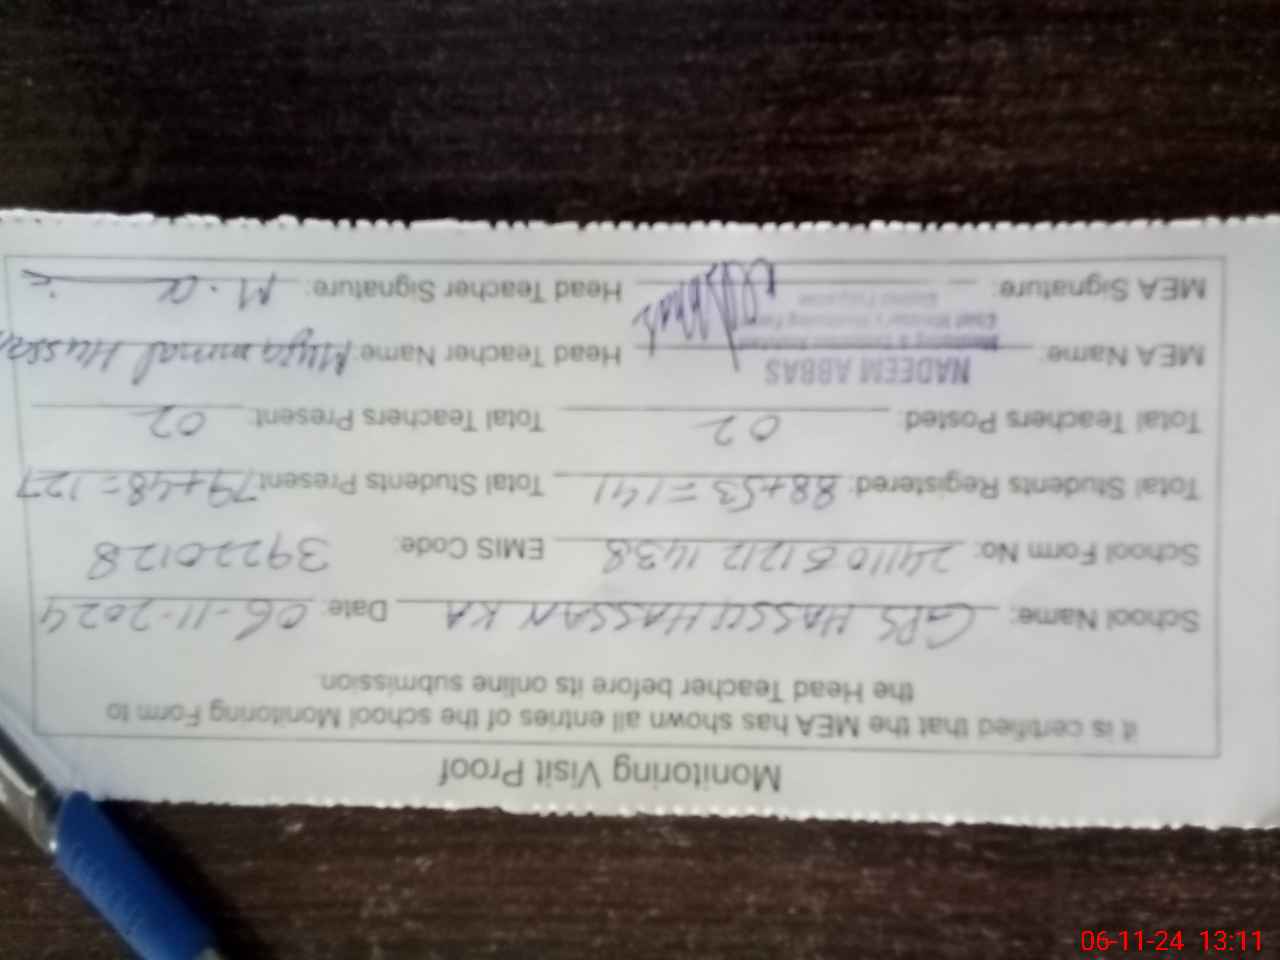 Monitoring Visit Proof
it is certified that the MEA has shown all entries of the school Monitoring Form to
the Head Teacher before its online submission.
School Name: GPS HASSU HASSAN KA Date: 06-11-2024
School Form No: EMIS Code: 39220128
Total Students Registered: 88+53=141 Total Students Present: 79+48=127
Total Teachers Posted: 02 Total Teachers Present: 02
MEA Name: NADEEM ABBAS Head Teacher Name: Muzammal Hussain
MEA Signature: Head Teacher Signature:
06-11-24 13:11